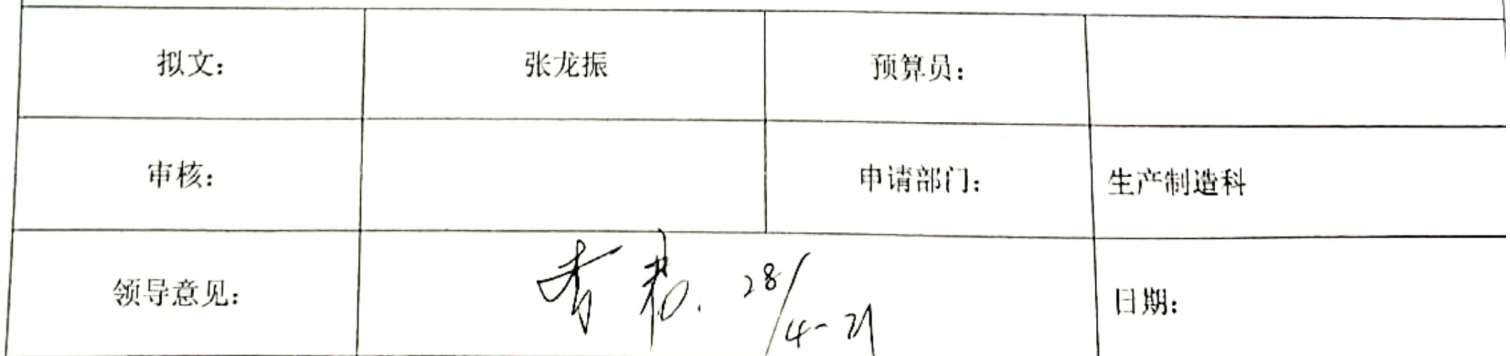 拟文： 张龙振 预算员：
审核： 申请部门： 生产制造科
领导意见： 28/4-21 日期：